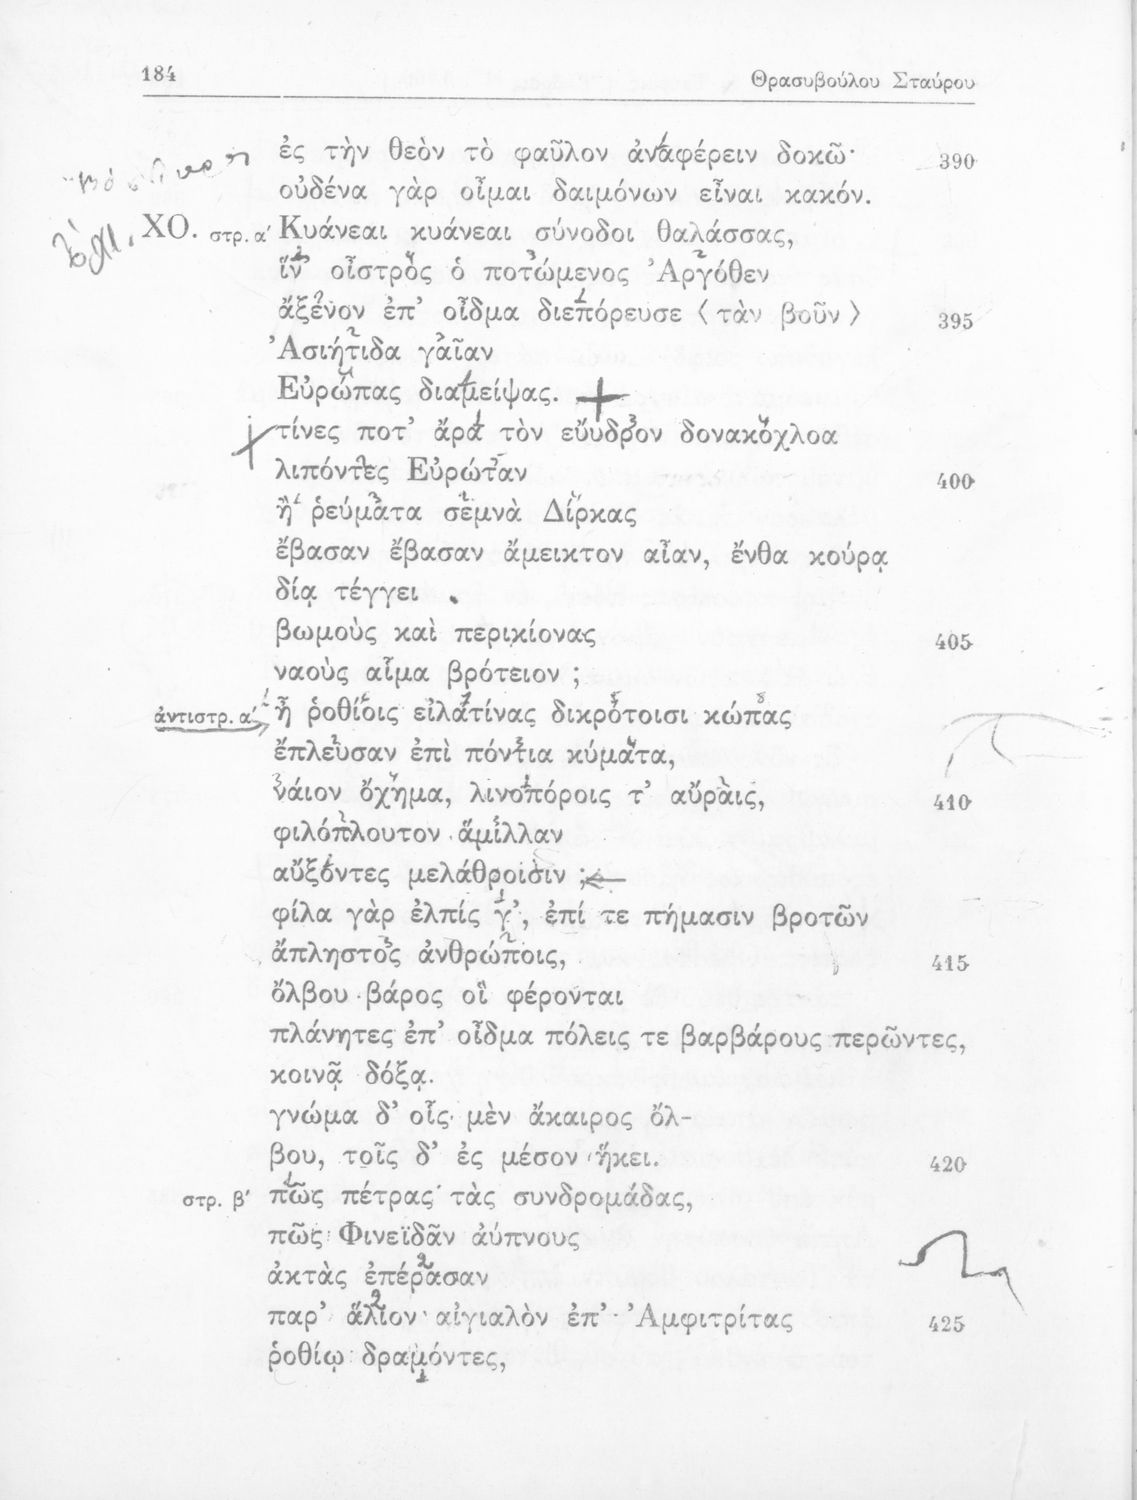 184
Θρασυβούλου Σταύρου
ἐς τὴν θεὸν τὸ φαῦλον ἀναφέρειν δοκῶ· 390
οὐδένα γὰρ οἶμαι δαιμόνων εἶναι κακόν.
ΧΟ. στρ. α΄ Κυάνεαι κυάνεαι σύνοδοι θαλάσσας,
ἵν’ οἶστρος ὁ ποτώμενος Ἀργόθεν
ἄξενον ἐπ’ οἶδμα διεπόρευσε ⟨τὰν βοῦν⟩ 395
Ἀσιήτιδα γαῖαν
Εὐρώπας διαμείψας.
τίνες ποτ’ ἄρα τὸν εὔυδρον δονακόχλοα
λιπόντες Εὐρώταν 400
ἢ ῥεύματα σεμνὰ Δίρκας
ἔβασαν ἔβασαν ἄμεικτον αἶαν, ἔνθα κούρᾳ
δίᾳ τέγγει
βωμοὺς καὶ περικίονας 405
ναοὺς αἷμα βρότειον ;
ἀντιστρ. α΄ ἦ ῥοθίοις εἰλατίνας δικρότοισι κώπας
ἔπλευσαν ἐπὶ πόντια κύματα,
νάιον ὄχημα, λινοπόροις τ’ αὔραις, 410
φιλόπλουτον ἅμιλλαν
αὔξοντες μελάθροισιν ;
φίλα γὰρ ἐλπίς γ’, ἐπί τε πήμασιν βροτῶν
ἄπληστος ἀνθρώποις, 415
ὄλβου βάρος οἳ φέρονται
πλάνητες ἐπ’ οἶδμα πόλεις τε βαρβάρους περῶντες,
κοινᾷ δόξᾳ.
γνώμα δ’ οἷς μὲν ἄκαιρος ὄλ-
βου, τοῖς δ’ ἐς μέσον ἥκει. 420
στρ. β΄ πῶς πέτρας τὰς συνδρομάδας,
πῶς Φινεϊδᾶν ἀύπνους
ἀκτὰς ἐπέρασαν
παρ’ ἅλιον αἰγιαλὸν ἐπ’ Ἀμφιτρίτας 425
ῥοθίῳ δραμόντες,